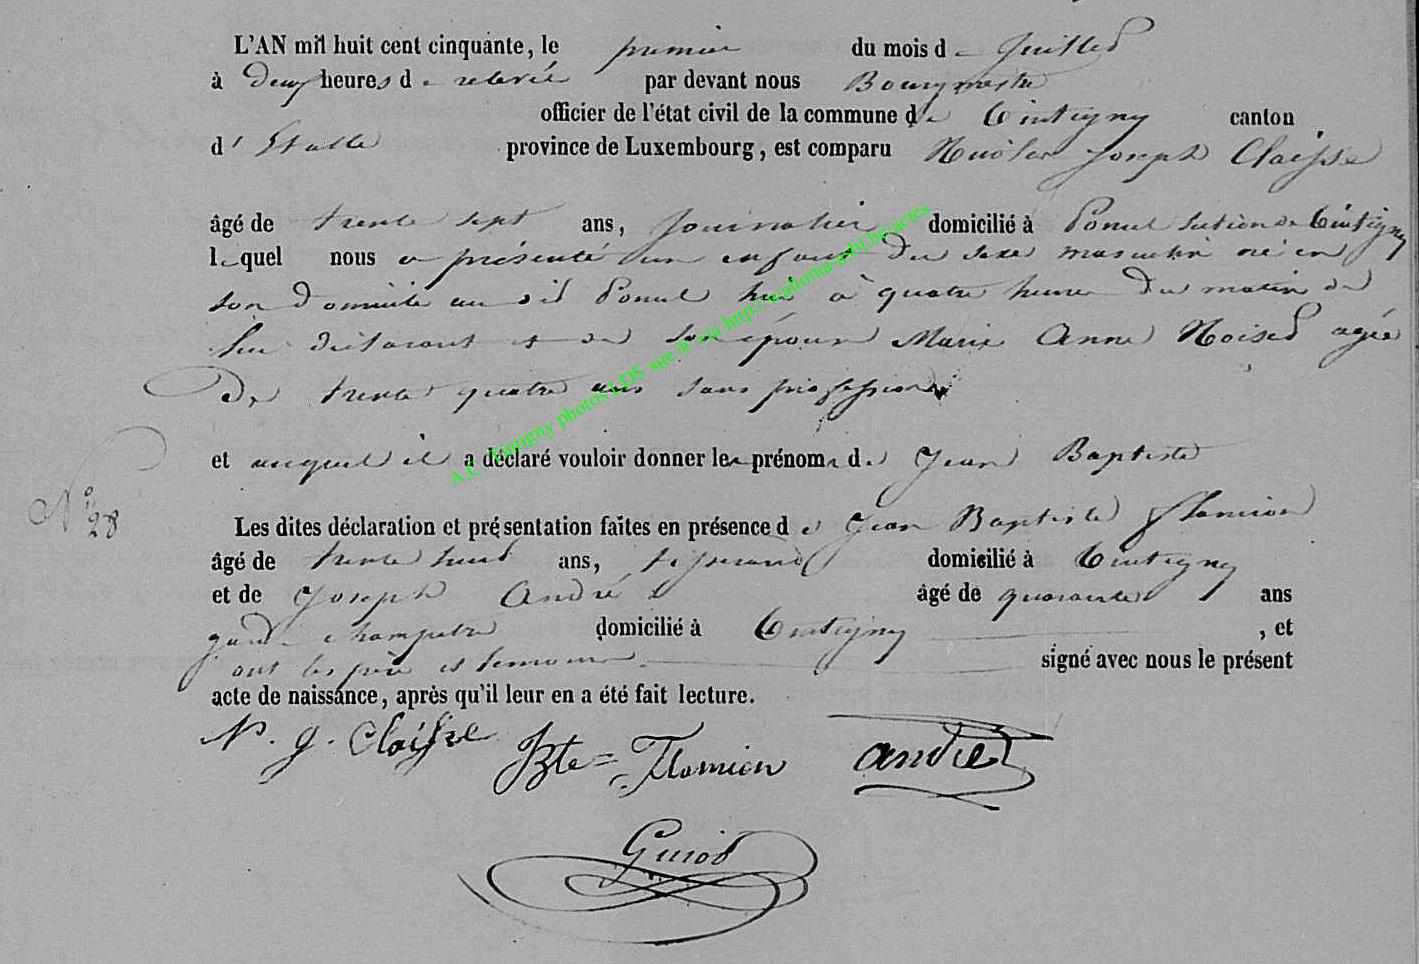 L'AN mil huit cent cinquante, le premier du mois de Juillet
à Deux heures de relevée par devant nous Bourgmestre
officier de l'état civil de la commune de Tintigny canton
d'Etalle province de Luxembourg, est comparu Nicolas Joseph Claisse
âgé de trente sept ans, journalier domicilié à Poncel Section de Tintigny
lequel nous a présenté un enfant du sexe masculin né en
son domicile au dit Poncel hui à quatre heures du matin de
lui déclarant et de son épouse Marie Anne Noiset agée
De trente quatre ans sans profession
et auquel il a déclaré vouloir donner les prénoms de Jean Baptiste
N° 28
Les dites déclaration et présentation faites en présence de Jean Baptiste Flamion
âgé de trente huit ans, tisserand domicilié à Tintigny
et de Joseph André âgé de quarante ans
garde champetre domicilié à Tintigny , et
ont les père et temoins signé avec nous le présent
acte de naissance, après qu'il leur en a été fait lecture.
N. J. Claisse Bte Flamion andré
A.C. Tintigny photos LDS site & via http://walloma-asbl.be/actes